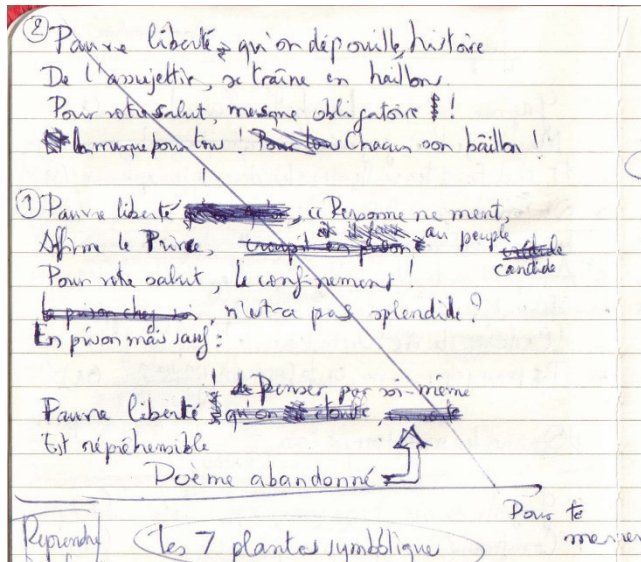 ② Pauvre liberté, qu'on dépouille, histoire
De l'assujettir, se traîne en haillon.
Pour votre salut, masque obligatoire !
Un masque pour tous ! Pour tous Chacun son bâillon !
① Pauvre liberté , « Personne ne ment,
Affirme le Prince, croupit en prison au peuple
crédule
candide
Pour votre salut, le confinement !
La prison chez soi, n'est-ce pas splendide ?
En prison mais sauf :
! de Penser par soi-même
Pauvre liberté qu'on étouffe,
Est répréhensible
Poème abandonné
Pour te
Reprendre
Les 7 plantes symbolique